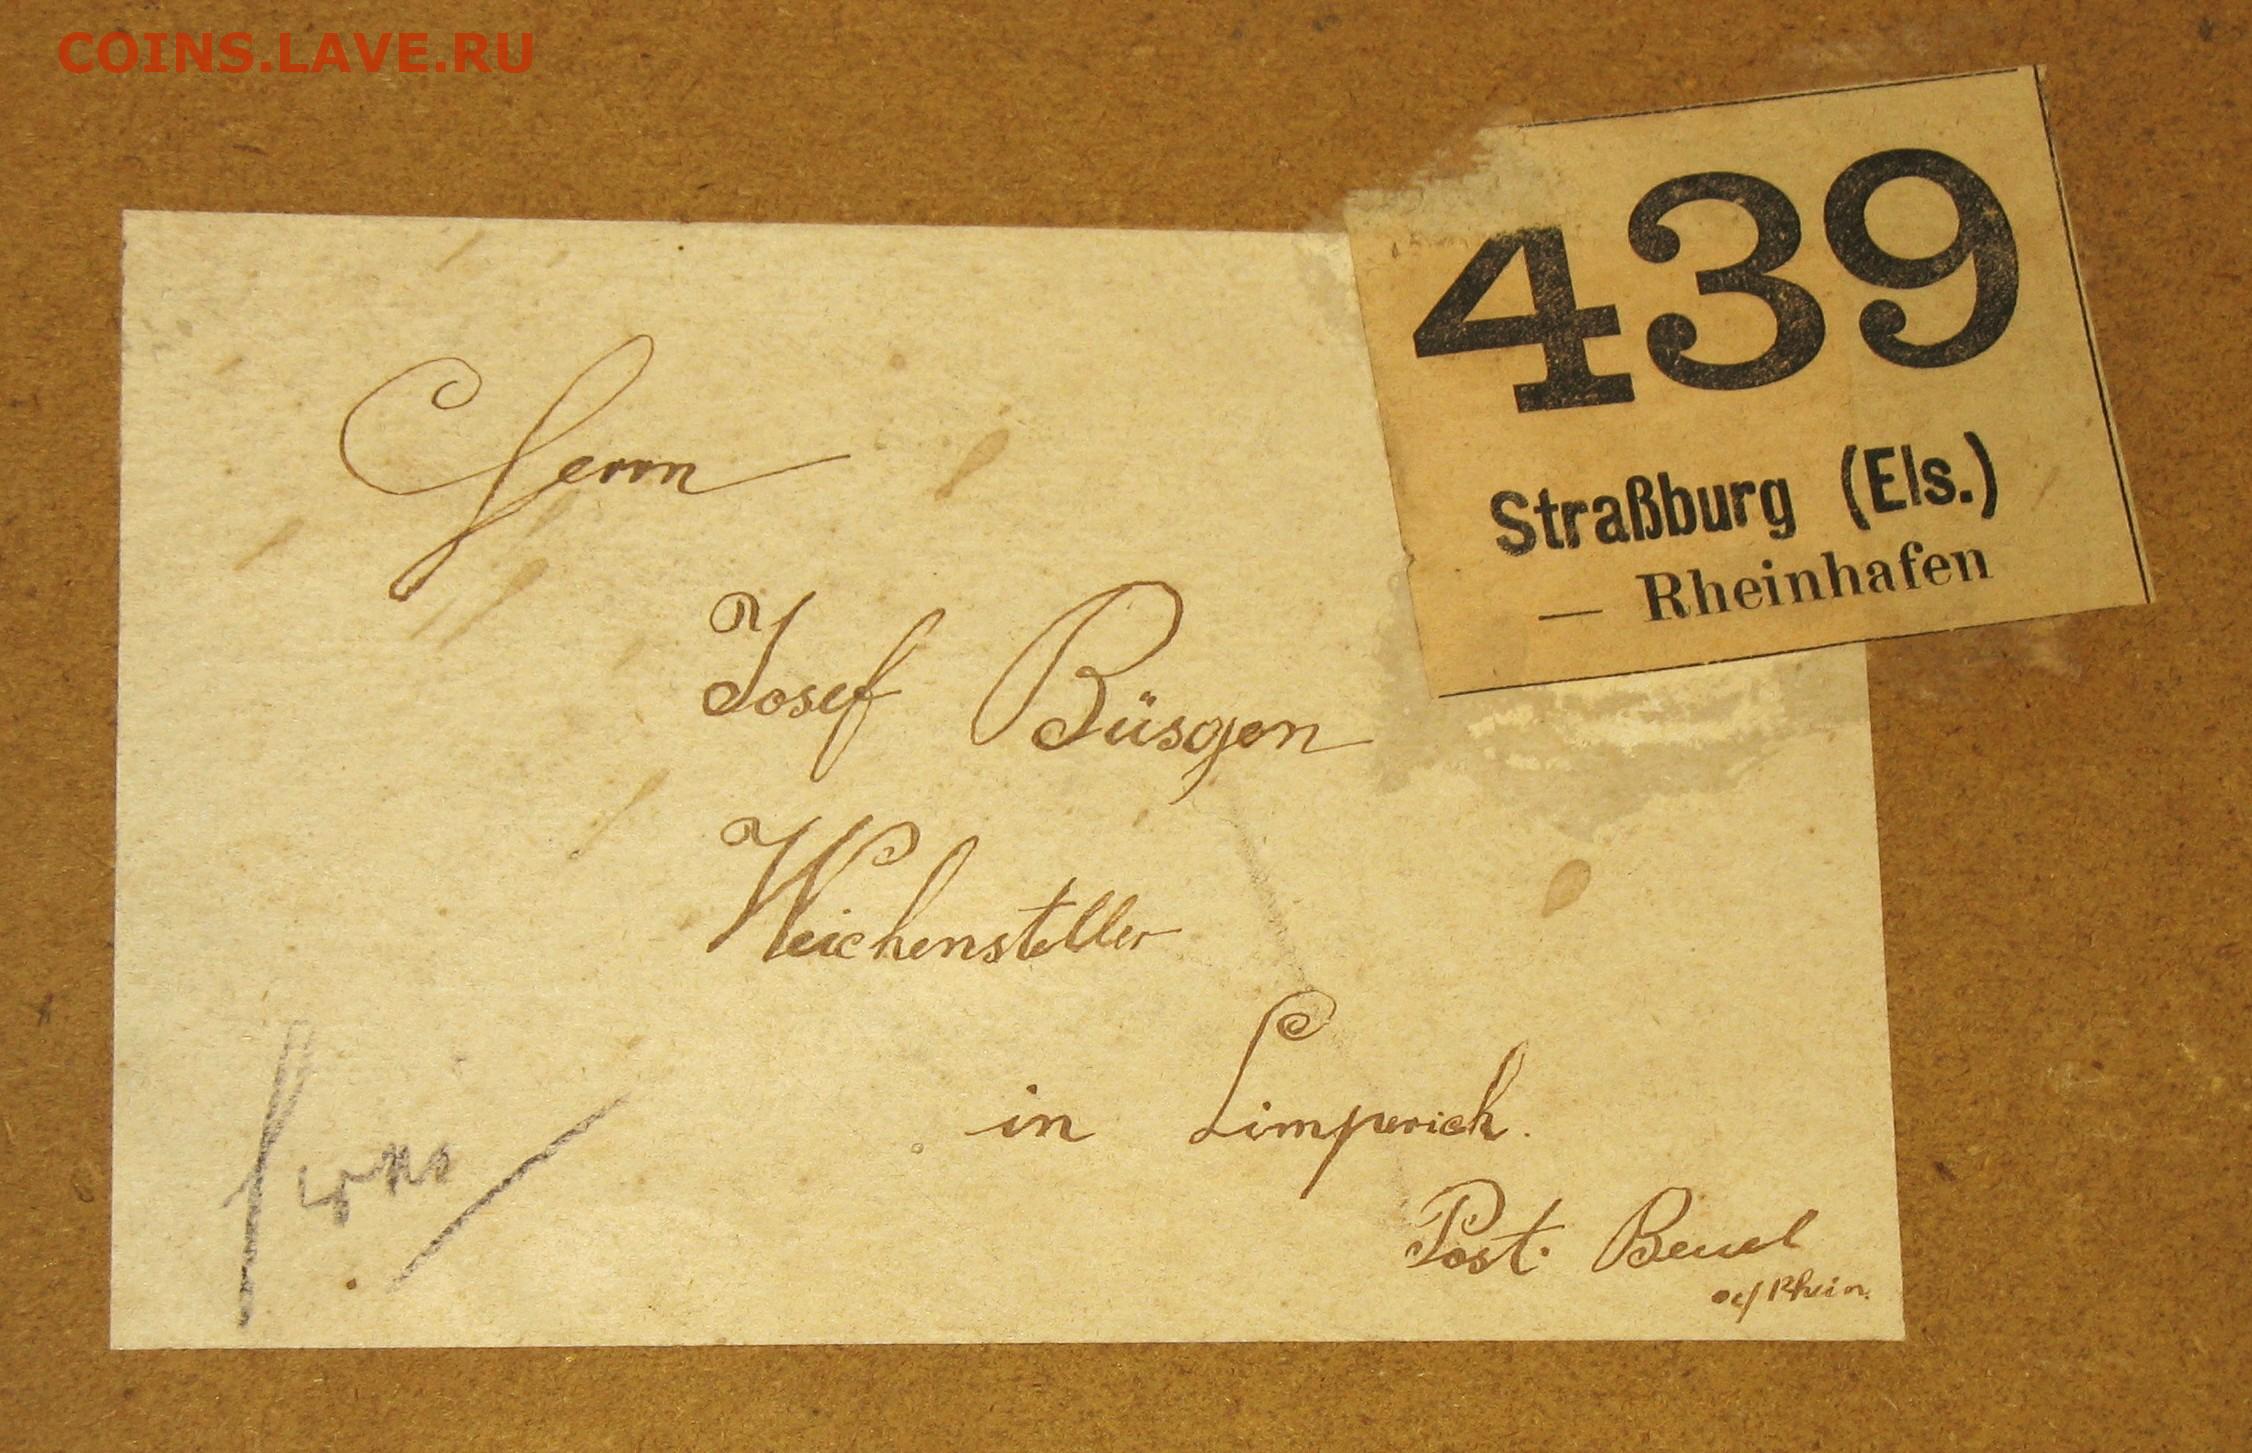 COINS.LAVE.RU
439
Straßburg (Els.)
— Rheinhafen
Herrn
Josef Büsgen
Weichensteller
in Limperich.
Post. Beuel
a/ Rhein.